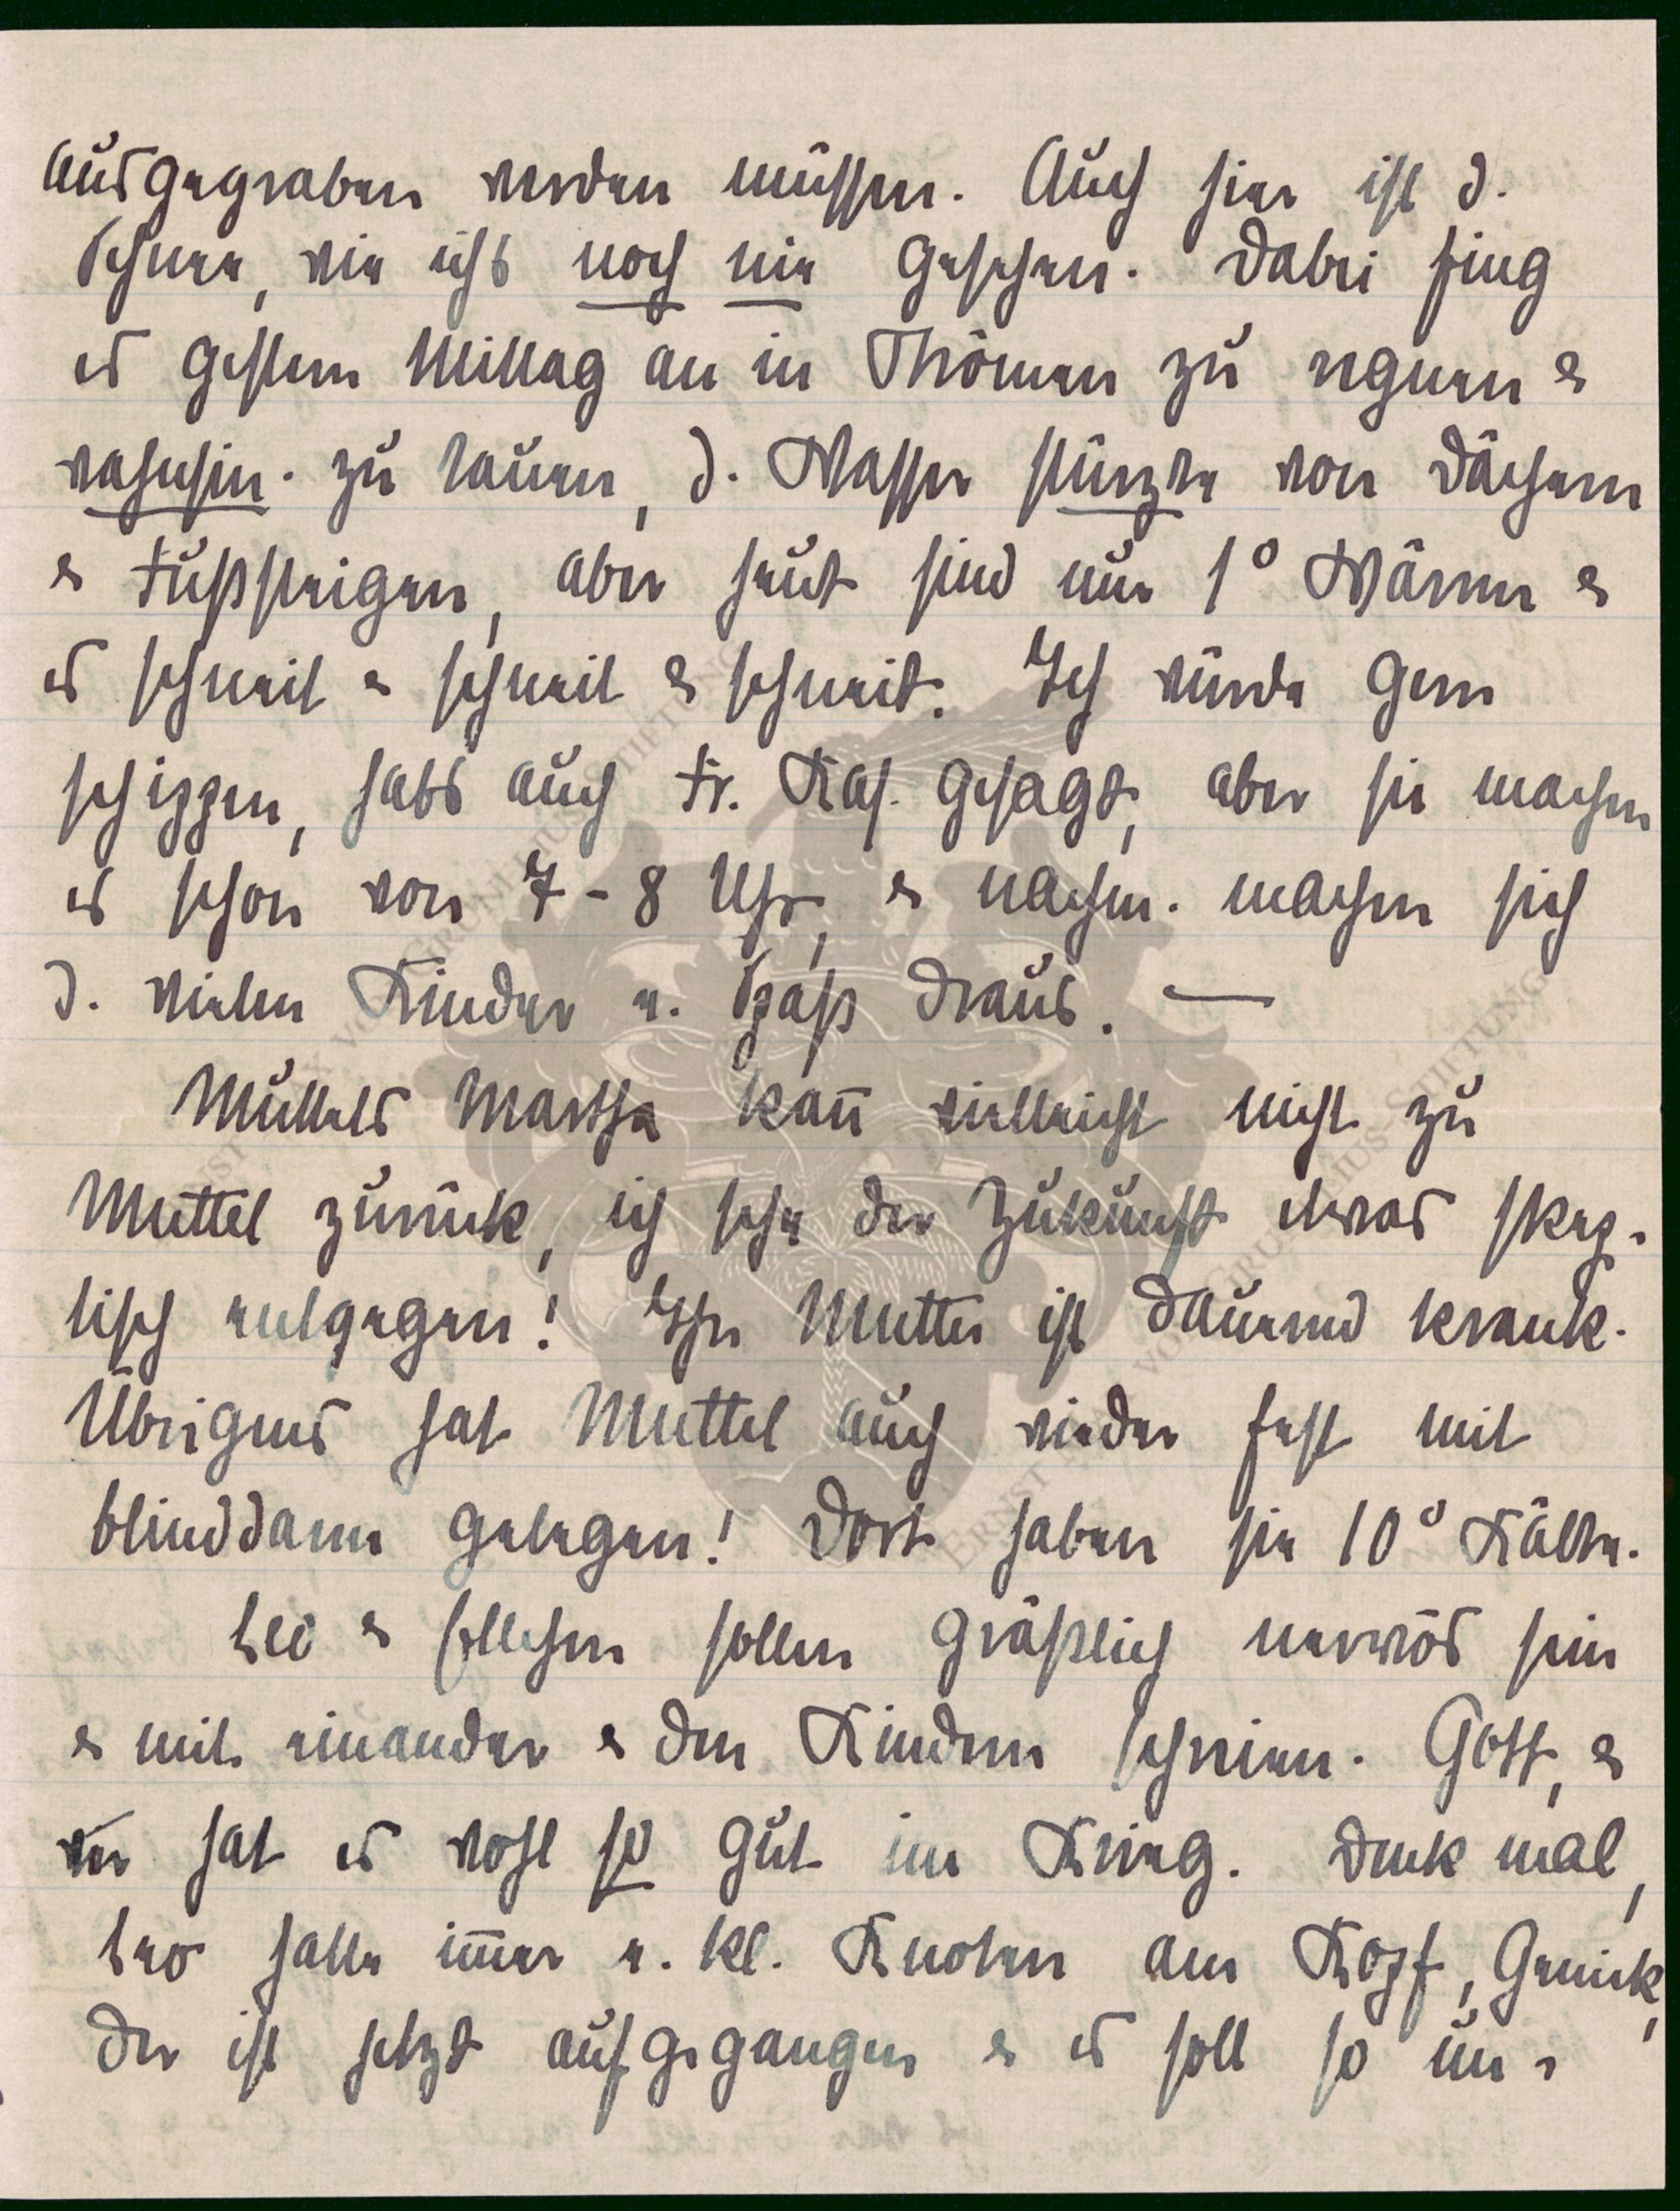 ausgegraben werden müssen. Auch hier ist d.
Schnee, wie ichs noch nie gesehen. Dabei fing
es gestern Mittag an in Strömen zu regnen &
wahnsin. zu tauen, d. Wasser stürzte von Dächern
& Fußsteigen, aber heut sind nur 1° Wärme &
es schneit & schneit & schneit. Ich würde gern
schippen, habs auch Fr. Kas. gesagt, aber sie machen
es schon von 7-8 Uhr, & nachm. machen sich
d. vielen Kinder e. Spaß draus. —
Müllers Martha kan̄ vielleicht nicht zu
Muttel zurück, ich sehe der Zukunft etwas skep-
tisch entgegen! Ihre Mutter ist dauernd krank.
Übrigens hat Muttel auch wieder fest mit
Blinddarm gelegen! Dort haben sie 10° Kälte.
Leo & Ellchen sollen gräßlich nervös sein
& mit einander & den Kindern schreien. Gott, &
wer hat es wohl so gut im Krieg. Denk mal,
Leo hatte im̄er e. kl. Knoten am Kopf, Genick,
der ist jetzt aufgegangen & es soll so un-